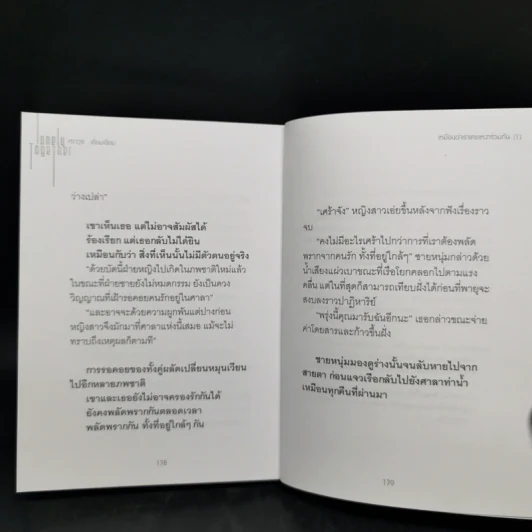 ว่างเปล่า”
เขาเห็นเธอ แต่ไม่อาจสัมผัสได้
ร้องเรียก แต่เธอกลับไม่ได้ยิน
เหมือนกับว่า สิ่งที่เห็นนั้นไม่มีตัวตนอยู่จริง
“ด้วยบัดนี้ฝ่ายหญิงไปเกิดในภพชาติใหม่แล้ว
ในขณะที่ฝ่ายชายยังไม่หมดกรรม ยังเป็นดวง
วิญญาณที่เฝ้ารอคอยคนรักอยู่ในศาลา”
“และอาจจะด้วยความผูกพันแต่ปางก่อน
หญิงสาวจึงมักมาที่ศาลาแห่งนี้เสมอ แม้จะไม่
ทราบถึงเหตุผลก็ตามที”
การรอคอยของทั้งคู่ผลัดเปลี่ยนหมุนเวียน
ไปอีกหลายภพชาติ
เขาและเธอยังไม่อาจครองรักกันได้
ยังคงพลัดพรากกันตลอดเวลา
พลัดพรากกัน ทั้งที่อยู่ใกล้ๆ กัน
178
เหมือนว่าเราเคยพบกัน (1)
“เศร้าจัง” หญิงสาวเอ่ยขึ้นหลังจากฟังเรื่องราว
จบ
“คงไม่มีอะไรเศร้าไปกว่าการที่เราต้องพลัด
พรากจากคนรัก ทั้งที่อยู่ใกล้ๆ” ชายหนุ่มกล่าวด้วย
น้ำเสียงแผ่วเบาขณะที่เรือโยกคลอกไปตามแรง
คลื่น แต่ในที่สุดก็สามารถเทียบฝั่งได้ก่อนที่พายุจะ
สงบลงราวปาฏิหาริย์
“พรุ่งนี้คุณมารับฉันอีกนะ” เธอกล่าวขณะจ่าย
ค่าโดยสารและก้าวขึ้นฝั่ง
ชายหนุ่มมองดูร่างนั้นจนลับหายไปจาก
สายตา ก่อนแจวเรือกลับไปยังศาลาท่าน้ำ
เหมือนทุกคืนที่ผ่านมา
179